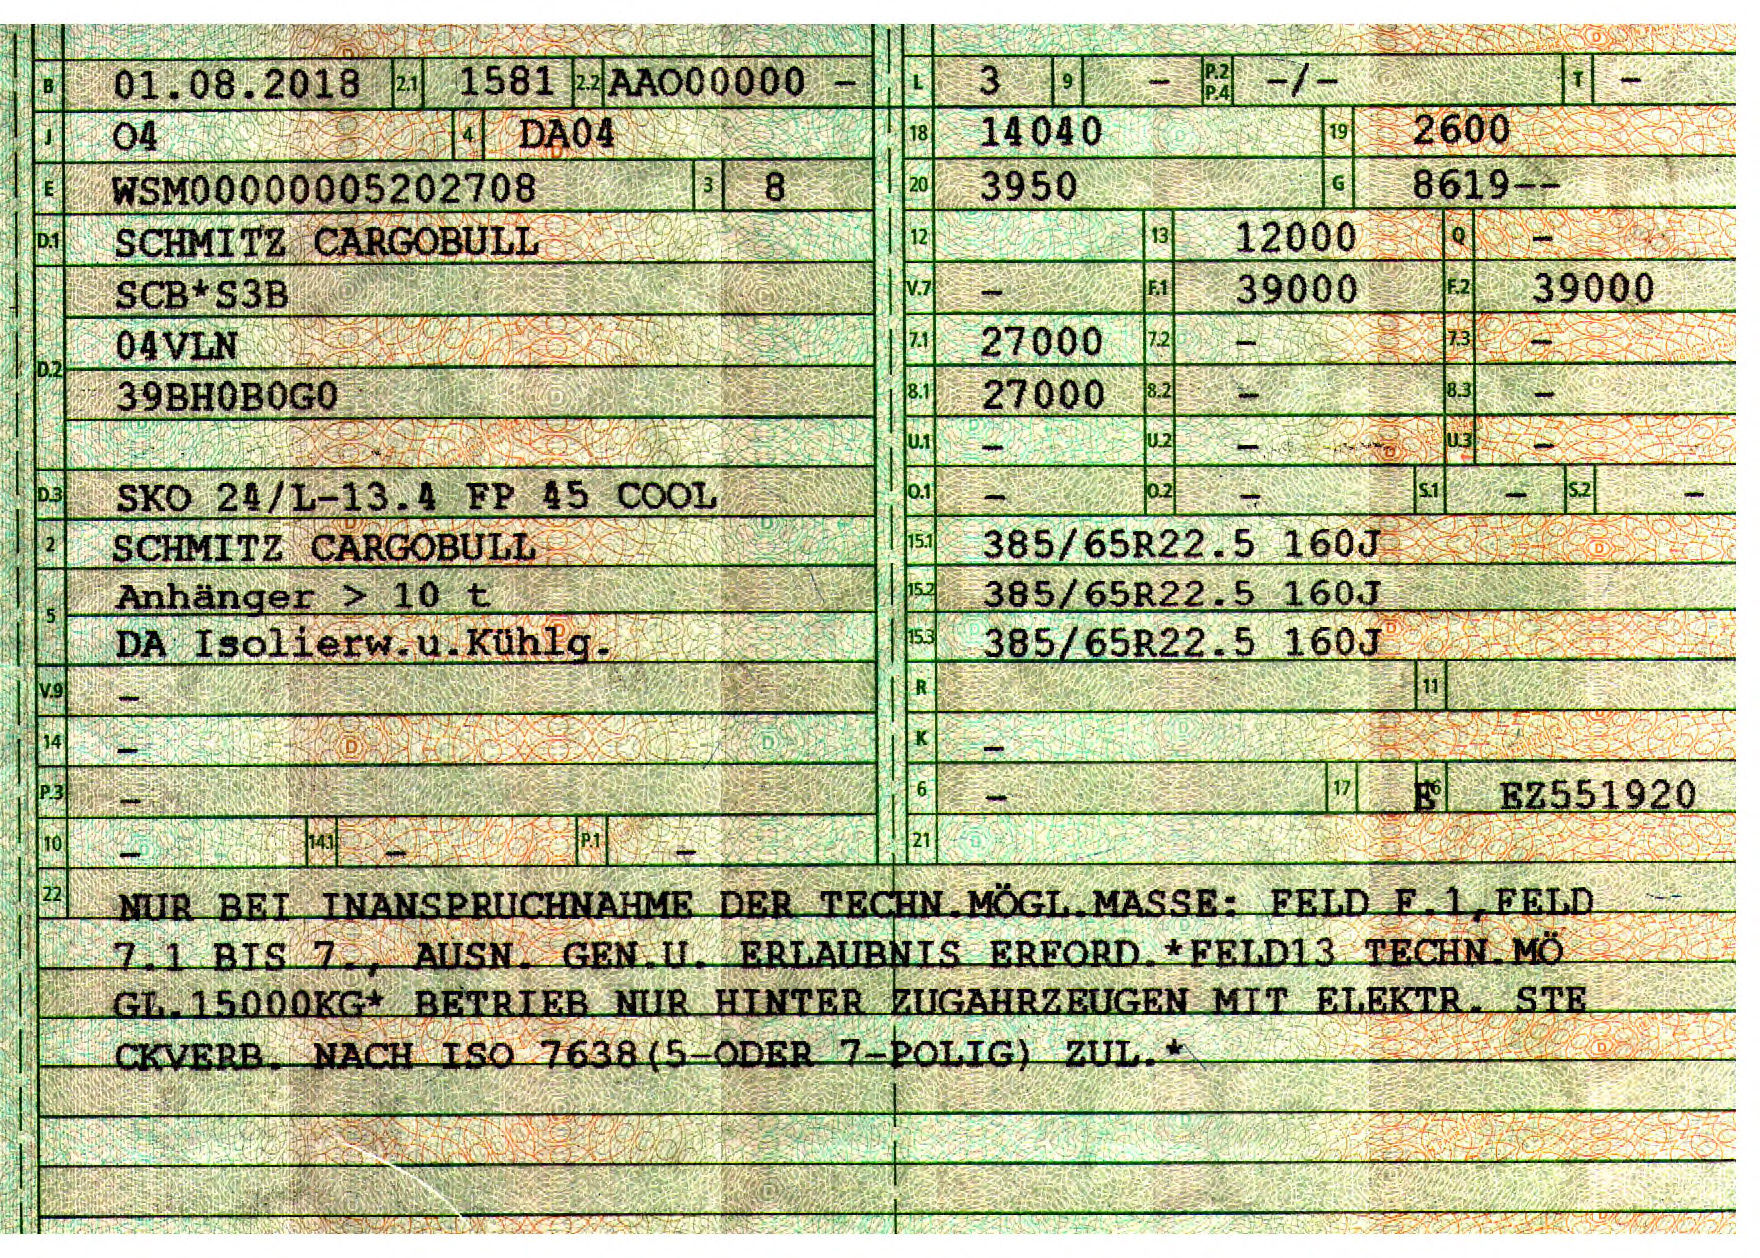 B 01.08.2018 2.1 1581 2.2 AAO00000 –
J O4 4 DA04
E WSM00000005202708 3 8
D.1 SCHMITZ CARGOBULL
SCB*S3B
D.2 04VLN
39BH0B0G0
D.3 SKO 24/L-13.4 FP 45 COOL
2 SCHMITZ CARGOBULL
5 Anhänger > 10 t
DA Isolierw.u.Kühlg.
V.9 –
14 –
P.3 –
10 – 14.1 – P.1 –
L 3 9 – P.2 P.4 –/– T –
18 14040 19 2600
20 3950 G 8619--
12 13 12000 Q –
V.7 – F.1 39000 F.2 39000
7.1 27000 7.2 – 7.3 –
8.1 27000 8.2 – 8.3 –
U.1 – U.2 – U.3 –
O.1 – O.2 – S.1 – S.2 –
15.1 385/65R22.5 160J
15.2 385/65R22.5 160J
15.3 385/65R22.5 160J
R 11
K –
6 – 17 E 16 EZ551920
21
22 NUR BEI INANSPRUCHNAHME DER TECHN.MÖGL.MASSE: FELD F.1,FELD
7.1 BIS 7., AUSN. GEN.U. ERLAUBNIS ERFORD.*FELD13 TECHN.MÖ
GL.15000KG* BETRIEB NUR HINTER ZUGAHRZEUGEN MIT ELEKTR. STE
CKVERB. NACH ISO 7638(5-ODER 7-POLIG) ZUL.*